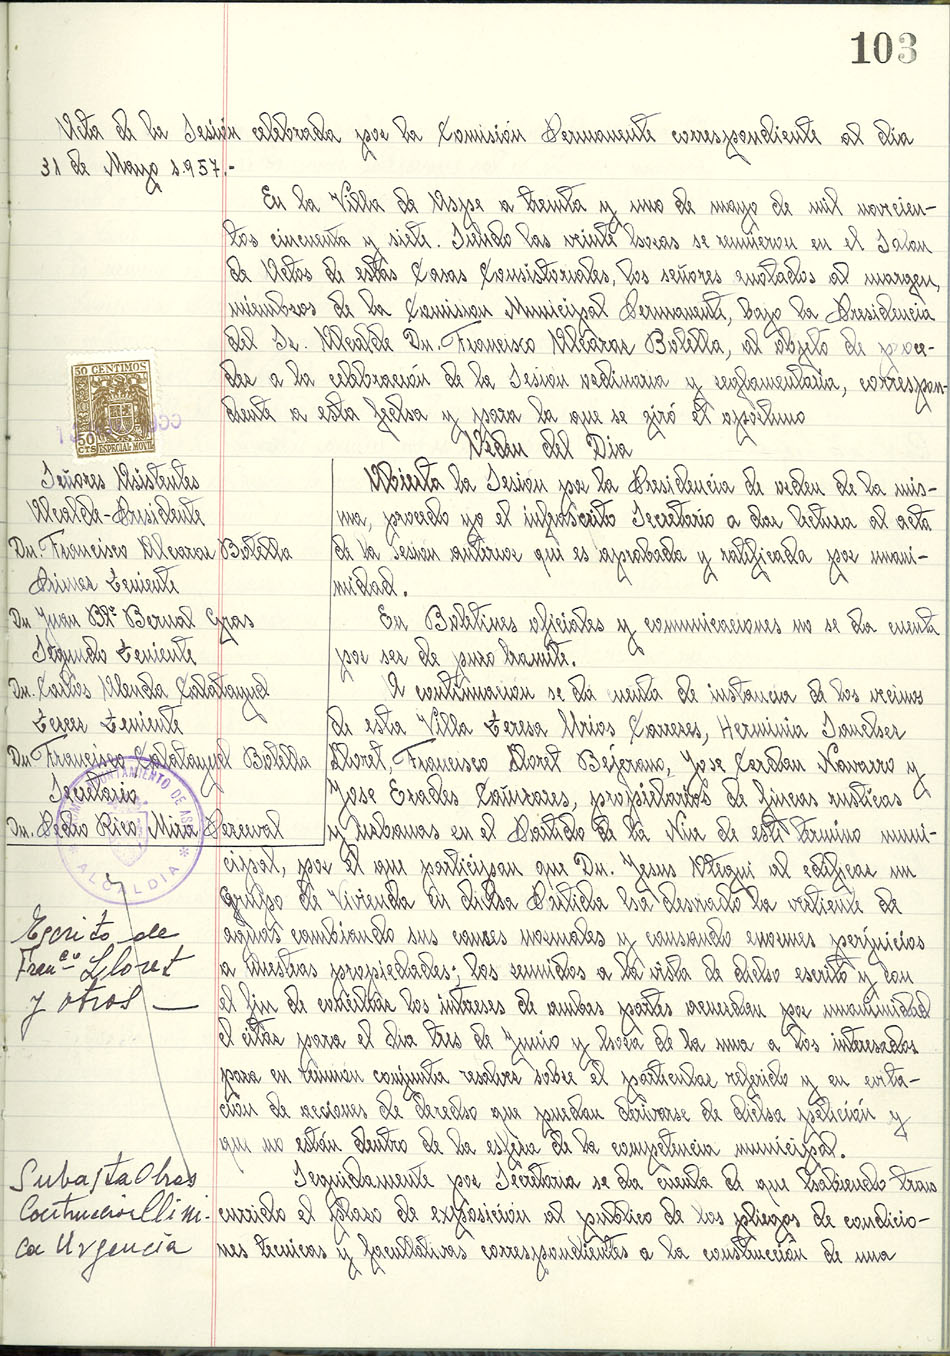 103
Acta de la Sesión celebrada por la Comisión Permanente correspondiente al dia
31 de Mayo 1.957.-
En la Villa de Aspe a treinta y uno de mayo de mil novecien-
tos cincuenta y siete. Siendo las veinte horas se reunieron en el Salon
de Actos de estas Casas Consistoriales, los señores anotados al margen,
miembros de la Comision Municipal Permanente, bajo la Presidencia
del Sr. Alcalde Dn. Francisco Alcaraz Botella, al objeto de proce-
der a la celebración de la Sesion ordinaria y reglamentaria, correspon-
diente a esta fecha y para la que se giró el oportuno
Orden del Dia
50 CENTIMOS
50
CTS ESPECIAL MOVIL
Señores Asistentes
Alcalde-Presidente
Dn. Francisco Alcaraz Botella
Primer Teniente
Dn Juan Btª Bernal Gras
Segundo Teniente
Dn. Carlos Alenda Calatayud
Tercer Teniente
Dn Francisco Calatayud Botella
Secretario
Dn. Pedro Rico Mira Perceval
AYUNTAMIENTO DE ASPE
* ALCALDIA *
Abierta la Sesion por la Presidencia de orden de la mis-
ma, procedo yo el infrascrito Secretario a dar lectura al acta
de la sesion anterior que es aprobada y ratificada por unani-
midad.
En Boletines oficiales y comunicaciones no se da cuenta
por ser de puro tramite.
A continuación se da cuenta de instancia de los vecinos
de esta Villa Teresa Urios Carreres, Herminia Sanchez
Lloret, Francisco Lloret Béjerano, Jose Cerdan Navarro y
Jose Erades Cañizares, propietarios de fincas rusticas
y urbanas en el Partido de la Nia de este termino muni-
cipal, por el que participan que Dn. Jesus Otegui al edificar un
Grupo de Vivienda en dicha Partida ha desviado la vertiente de
aguas cambiando sus cauces normales y causando enormes perjuicios
a nuestras propiedades; los reunidos a la vista de dicho escrito y con
el fin de conciliar los intereses de ambas partes acuerdan por unanimidad
el citar para el dia tres de Junio y hora de la una a los interesados
para en reunión conjunta resolver sobre el particular referido y en evita-
ción de acciones de derecho que puedan derivarse de dicha petición y
que no están dentro de la esfera de la competencia municipal.
Escrito de
Franco Lloret
y otros —
Seguidamente por Secretaria se da cuenta de que habiendo trans
currido el plazo de exposición al publico de los pliegos de condicio-
nes tecnicas y facultativas correspondientes a la construcción de una
Subasta Obras
Construccion Clini-
ca Urgencia